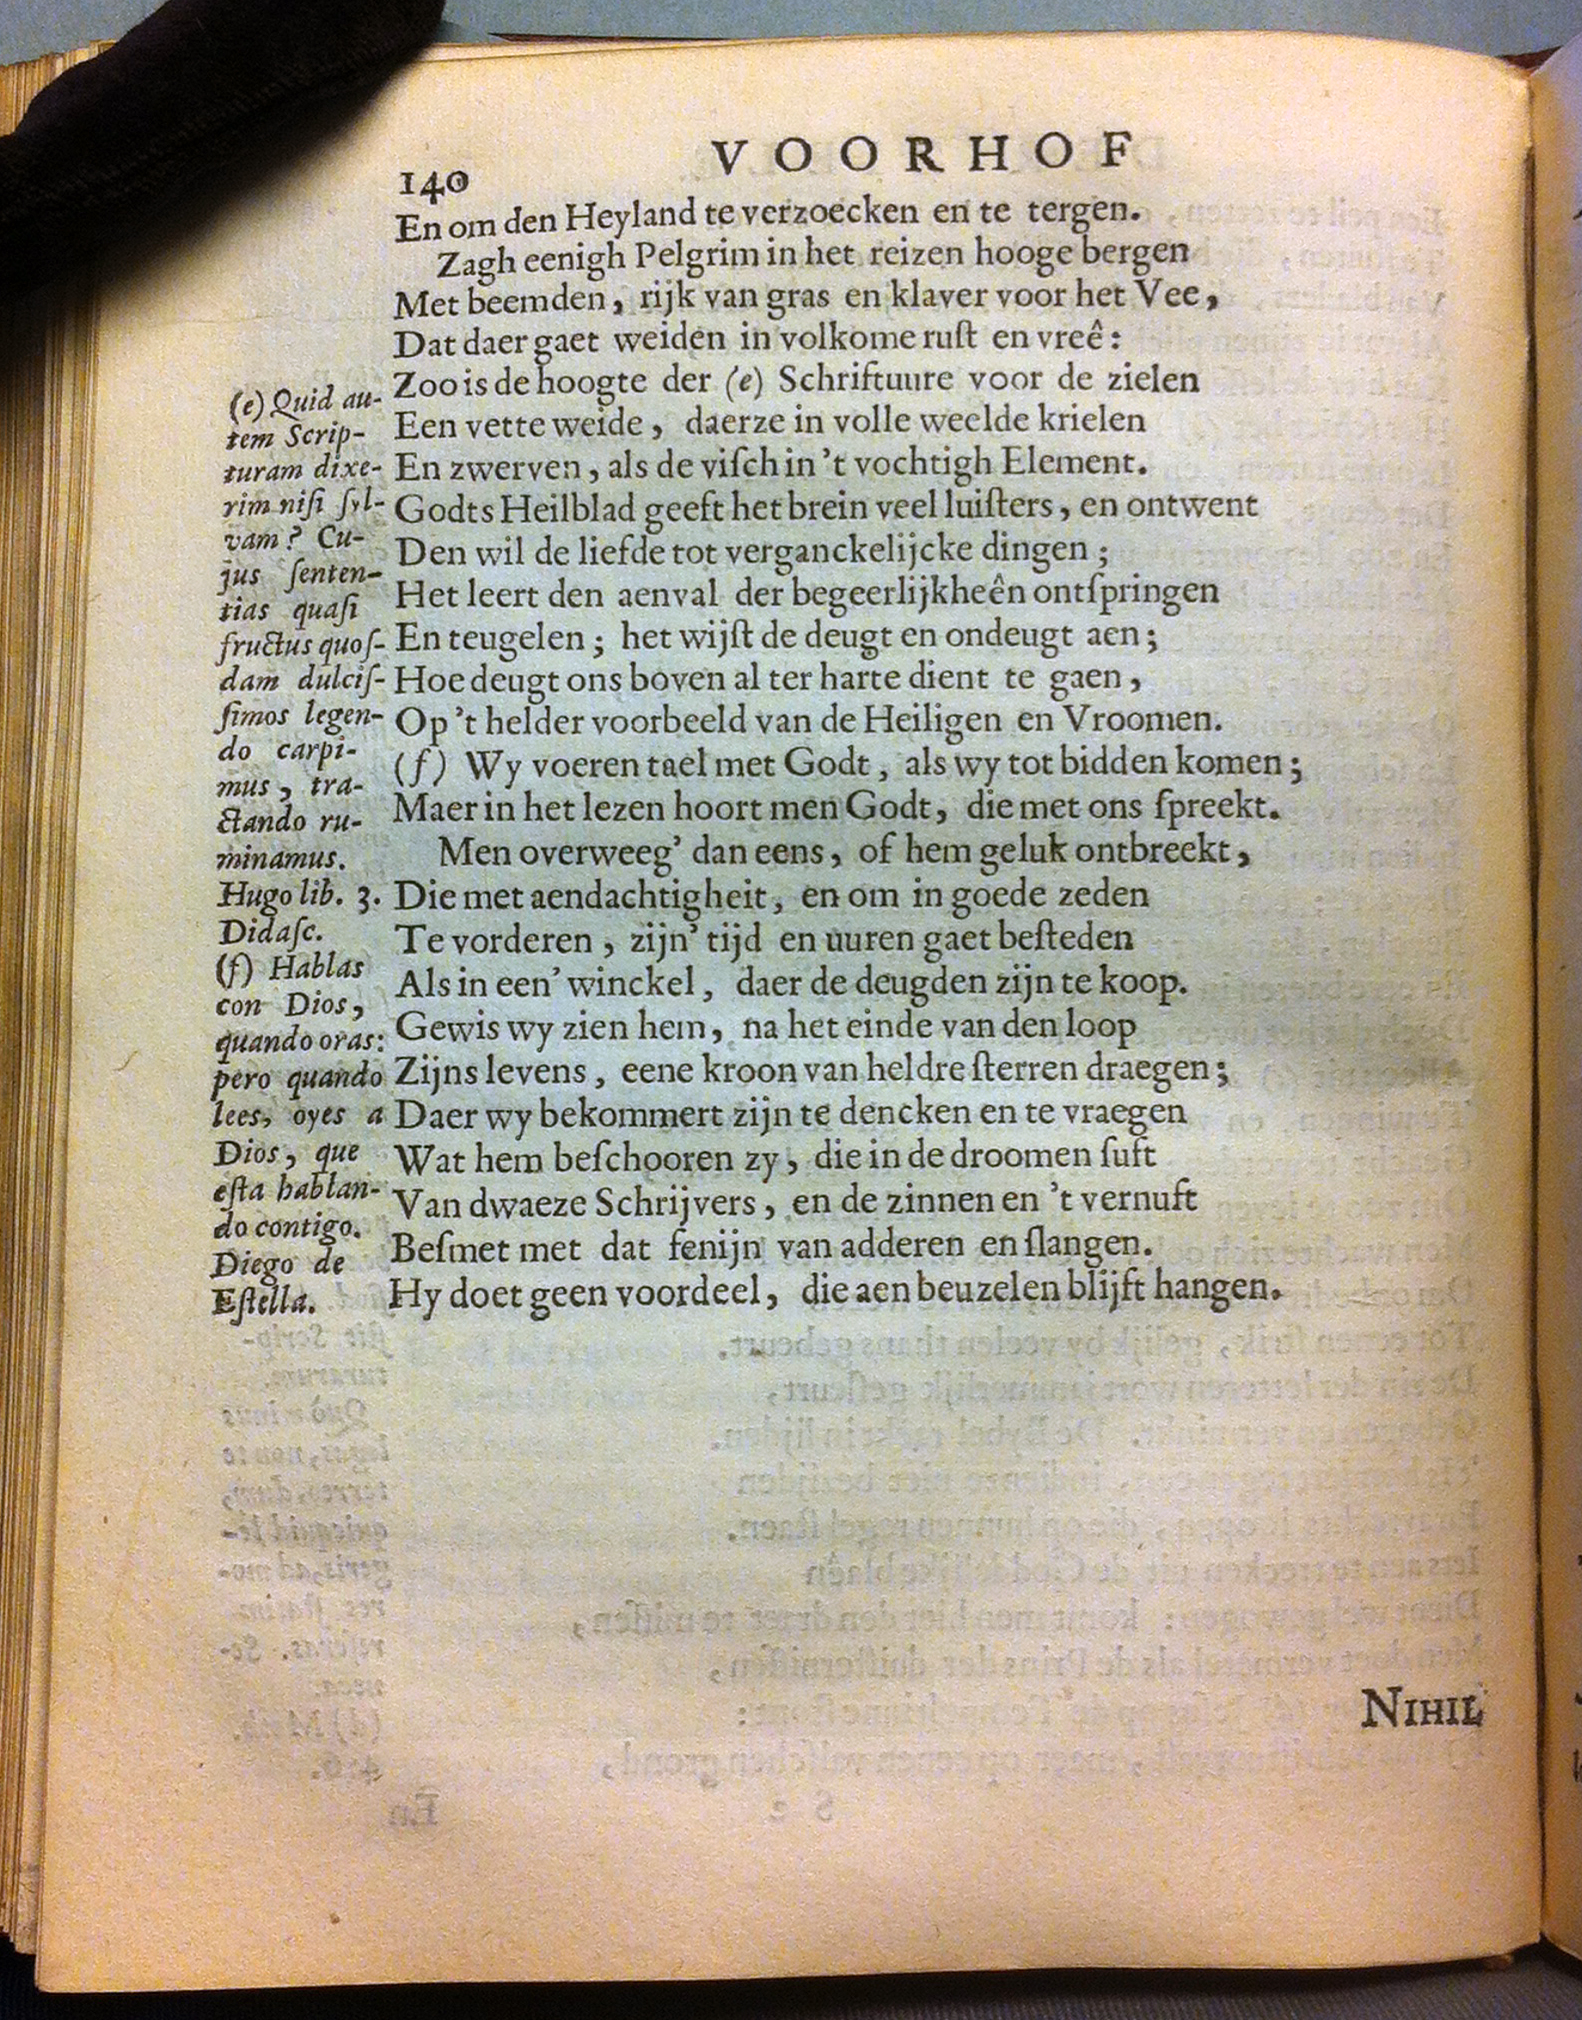 VOORHOF
140
En om den Heyland te verzoecken en te tergen.
Zagh eenigh Pelgrim in het reizen hooge bergen
Met beemden, rijk van gras en klaver voor het Vee,
Dat daer gaet weiden in volkome ruſt en vreê:
Zoo is de hoogte der (e) Schriftuure voor de zielen
Een vette weide, daerze in volle weelde krielen
En zwerven, als de viſch in 't vochtigh Element.
Godts Heilblad geeft het brein veel luiſters, en ontwent
Den wil de liefde tot verganckelijcke dingen;
Het leert den aenval der begeerlijkheên ontſpringen
En teugelen; het wijſt de deugt en ondeugt aen;
Hoe deugt ons boven al ter harte dient te gaen,
Op 't helder voorbeeld van de Heiligen en Vroomen.
(f) Wy voeren tael met Godt, als wy tot bidden komen;
Maer in het lezen hoort men Godt, die met ons ſpreekt.
Men overweeg' dan eens, of hem geluk ontbreekt,
Die met aendachtigheit, en om in goede zeden
Te vorderen, zijn' tijd en uuren gaet beſteden
Als in een' winckel, daer de deugden zijn te koop.
Gewis wy zien hem, na het einde van den loop
Zijns levens, eene kroon van heldre ſterren draegen;
Daer wy bekommert zijn te dencken en te vraegen
Wat hem beſchooren zy, die in de droomen ſuft
Van dwaeze Schrijvers, en de zinnen en 't vernuft
Beſmet met dat fenijn van adderen en ſlangen.
Hy doet geen voordeel, die aen beuzelen blijft hangen.
(e) Quid au-
tem Scrip-
turam dixe-
rim niſi ſyl-
vam? Cu-
jus ſenten-
tias quaſi
fructus quoſ-
dam dulciſ-
ſimos legen-
do carpi-
mus, tra-
ctando ru-
minamus.
Hugo lib. 3.
Didaſc.
(f) Hablas
con Dios,
quando oras:
pero quando
lees, oyes a
Dios, que
eſta hablan-
do contigo.
Diego de
Eſtella.
NIHIL